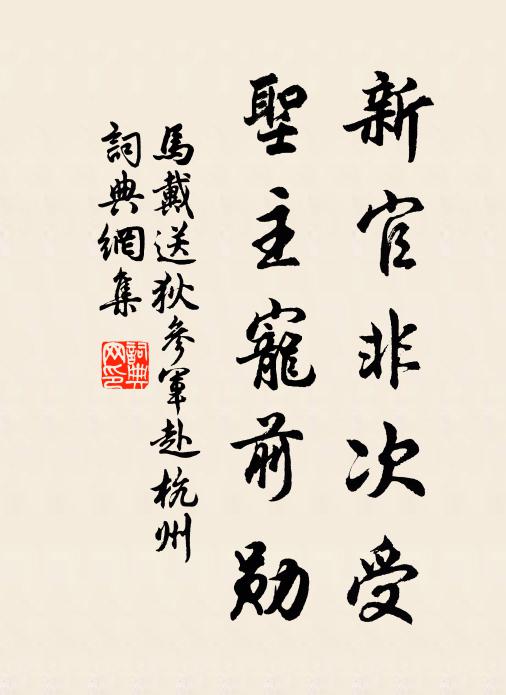 新官非次受
聖主寵前勛
馬戴送狄參軍赴杭州
詞典網集
詞典网印